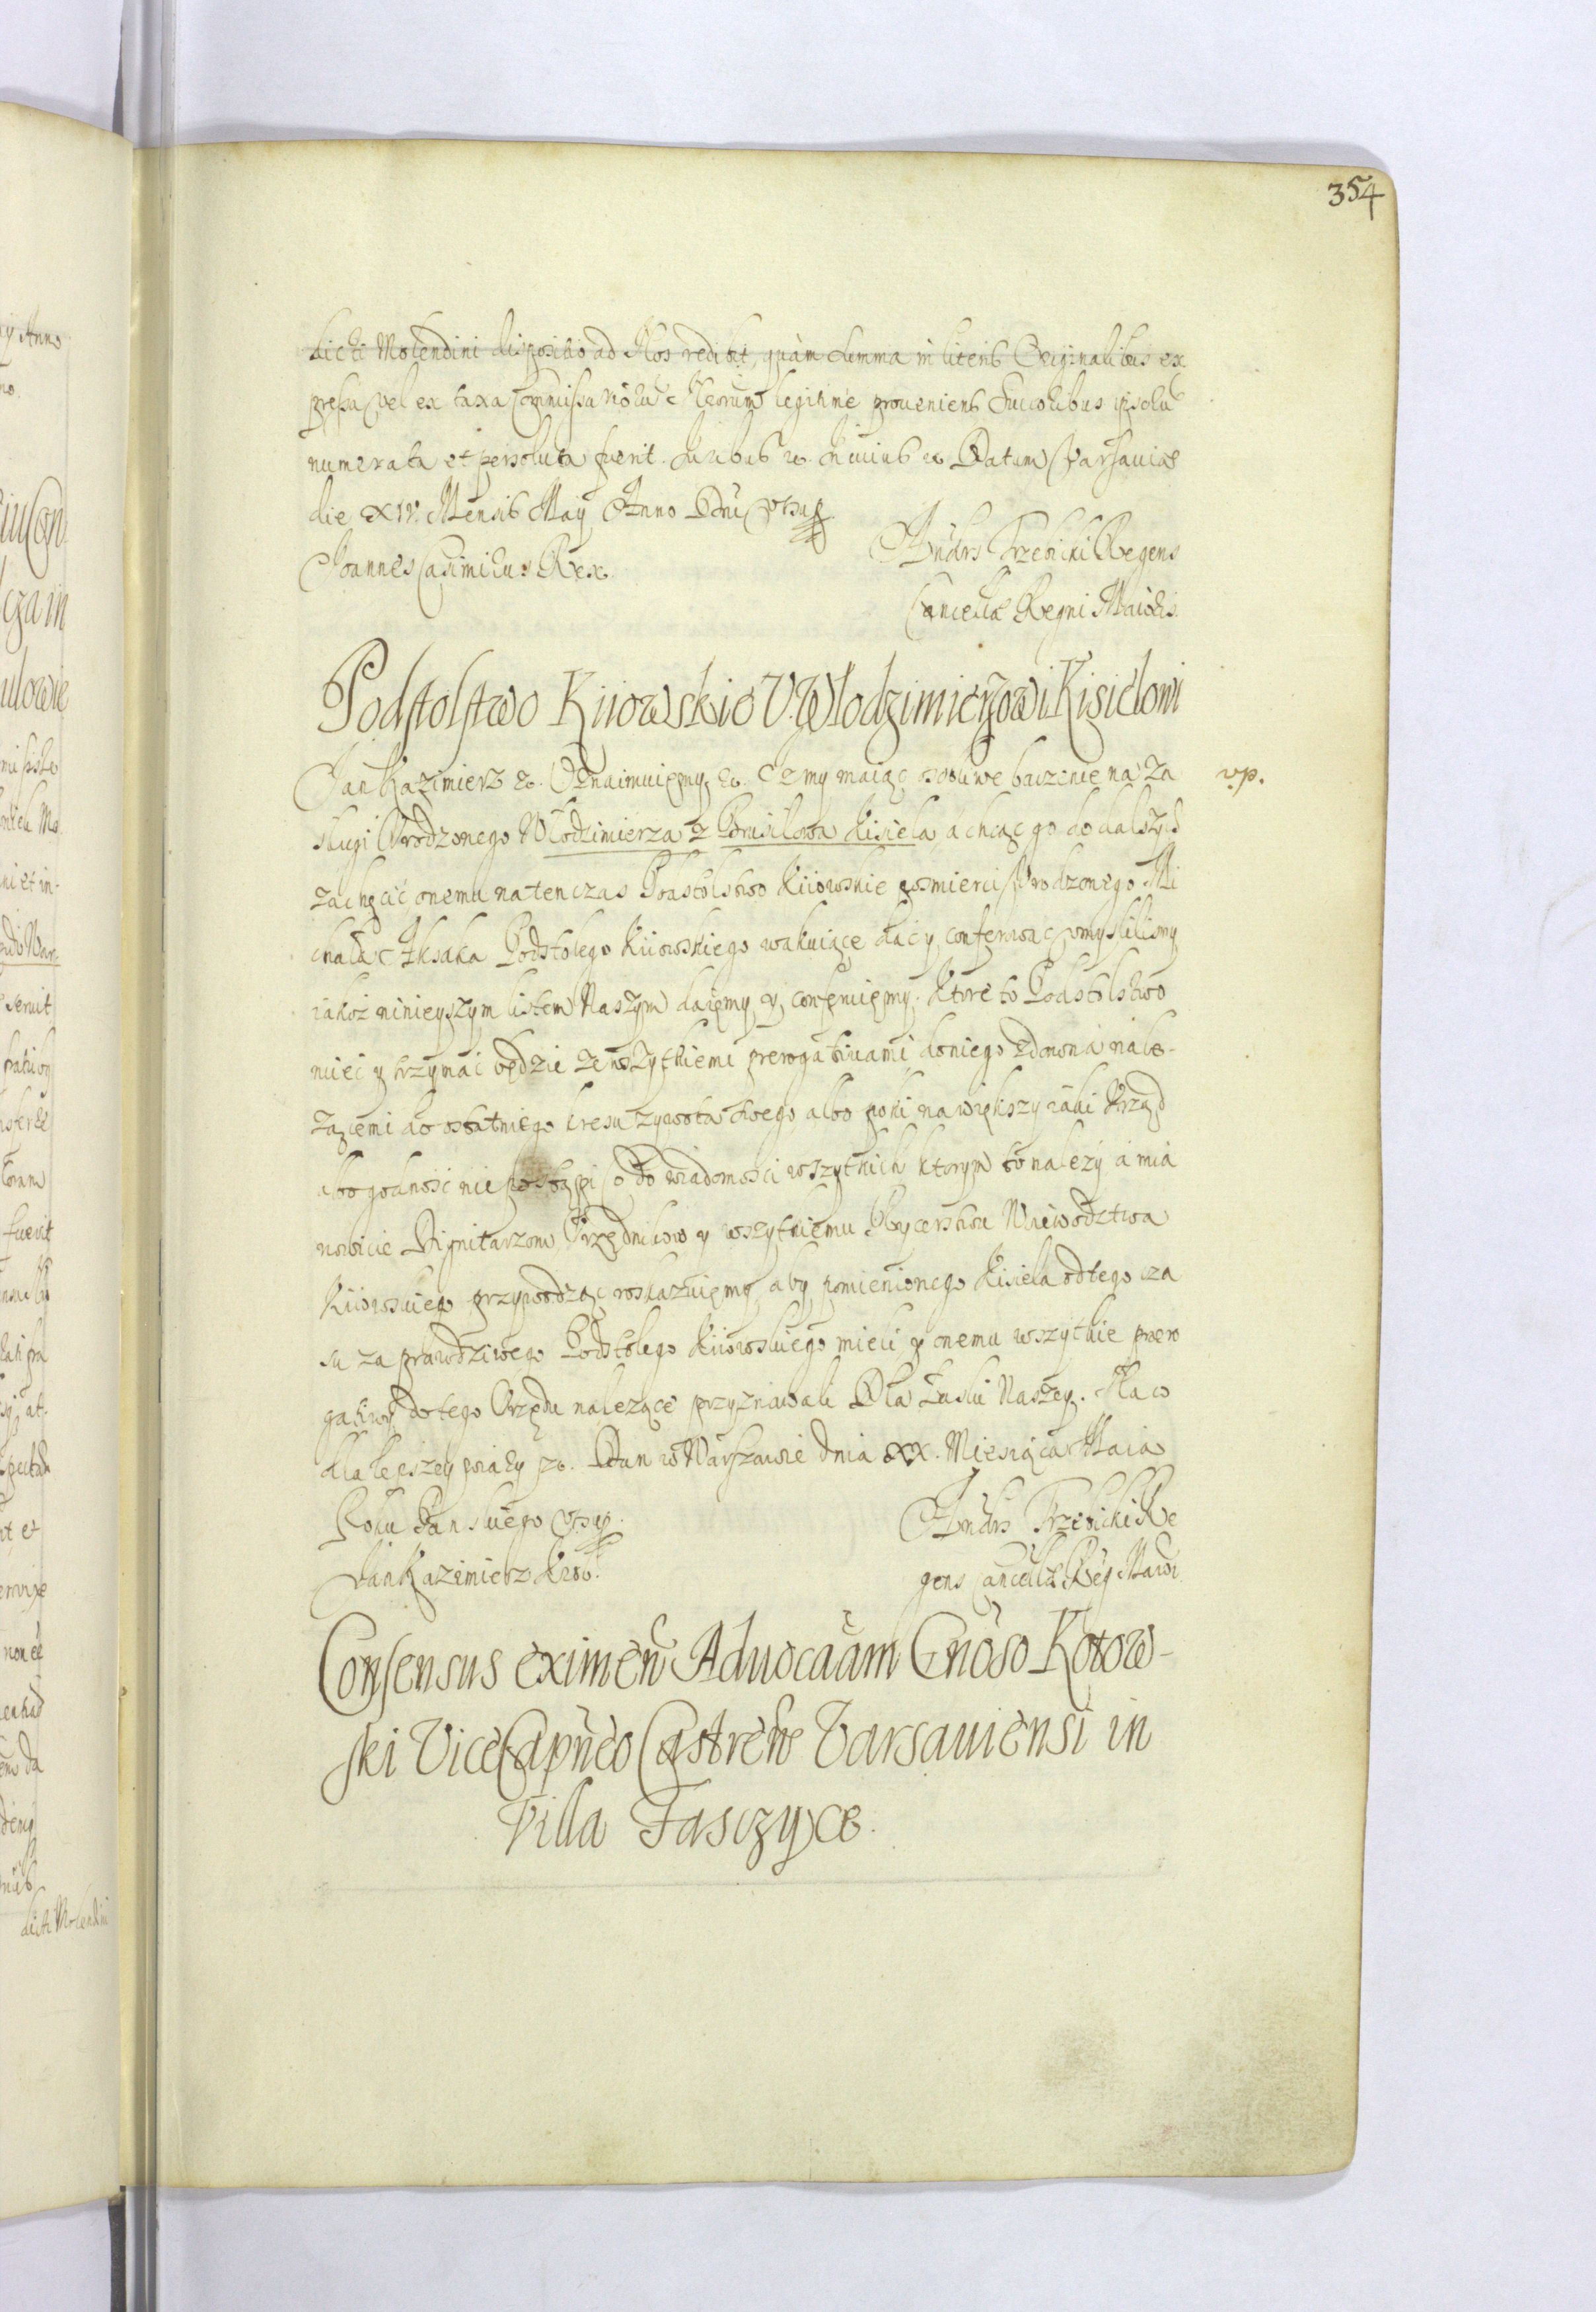 354
dicti Molendini dispositio ad Nos redibit, quàm summa in literis Originalibus ex
pressa vel ex taxa Commissariorũ Nrorum legitime proueniens Successoribus ipsoru
numerata et persoluta fuerit. Juribus &. In cuius &. Datum Varsauiae
die XIV. Mensis Maÿ Anno Dni vtsup̃
Joannes Casimirus Rex.
Andrs Trzebicki Regens
Cancellã Regni Maioris.
Podstolstwo Kiiowskie V. Wlodzimierzowi Kisielowi
Jan Kazimierz &. Oznaimuiemy &. Iz my maiąc osobliwe baczenie na za
vp.
sługi Vrodzonego Włodzimierza z Brusiłowa Kisiela, a chcąc go do dalszych
zachęcić onemu natenczas Podstolstwo Kiiowskie po smierci Vrodzonego Mi
chała Aksaka Podstolego Kiiowskiego wakuiące dać y conferować vmyslilismy
iakoż ninieyszym listem Naszym daiemy y conferuiemy. Ktore to Podstolstwo
mieć y trzymać będzie ze wszytkiemi prerogatiwami do niego zdawna nale-
żącemi do ostatniego kresu zywota swego albo poki na większy iaki Vrząd
abo godność nie postąpi Co do wiadomosci wszytkich ktorym to należy a mia
nowicie Dignitarzom Vrzędnikow y wszytkiemu Rycerstwu Woiewodztwa
Kiiowskiego przywodząc roskazuiemy, aby pomienionego Kisiela od tego cza
su za prawdziwego Podstolego Kiiowskiego mieli y onemu wszytkie prero
gatiwy do tego Vrzędu nalezące przyznawali Dla Łaski Naszey. Na co
dla lepszey wiary &. Dan w Warszawie dnia XX. Miesiąca Maia
Roku Pańskiego vtsup̃.
Jan Kazimierz Krol.
Andrs Trzebicki Re
gens Cancellã Reg Maior
Consensus eximeñ Aduocaãm Gnõso Kotow-
ski Vice Capñeo Castreñ Varsauiensi in
Villa Fasczyce.